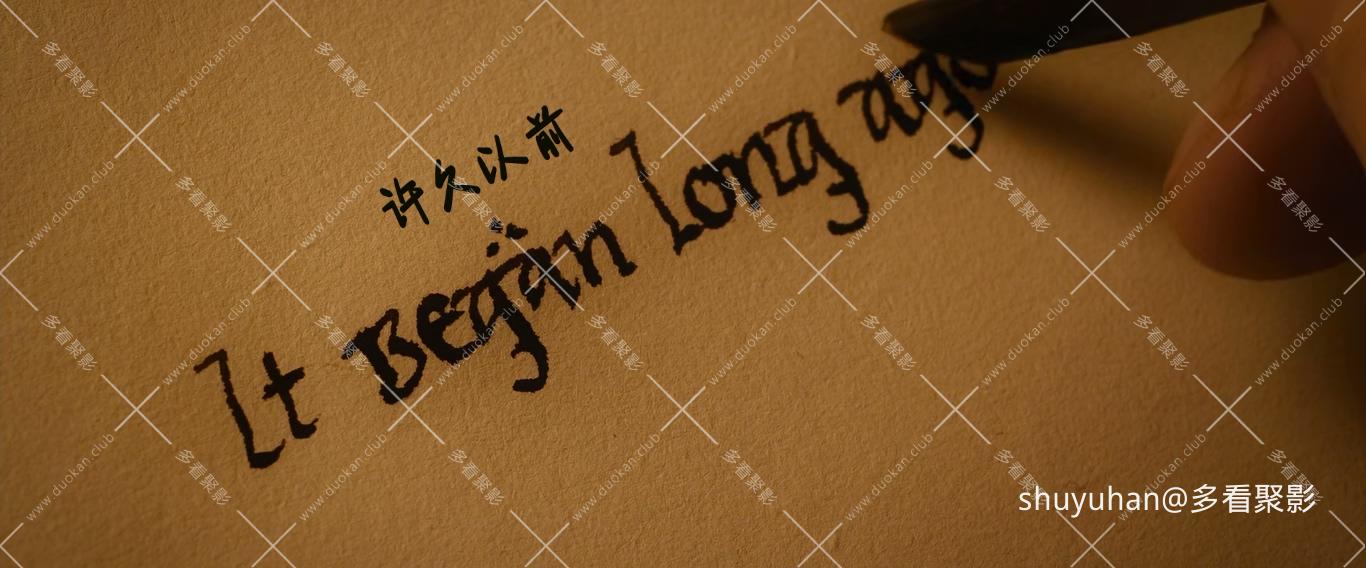 许久以前
It Began long ago
shuyuhan@多看聚影
www.duokan.club
多看聚影